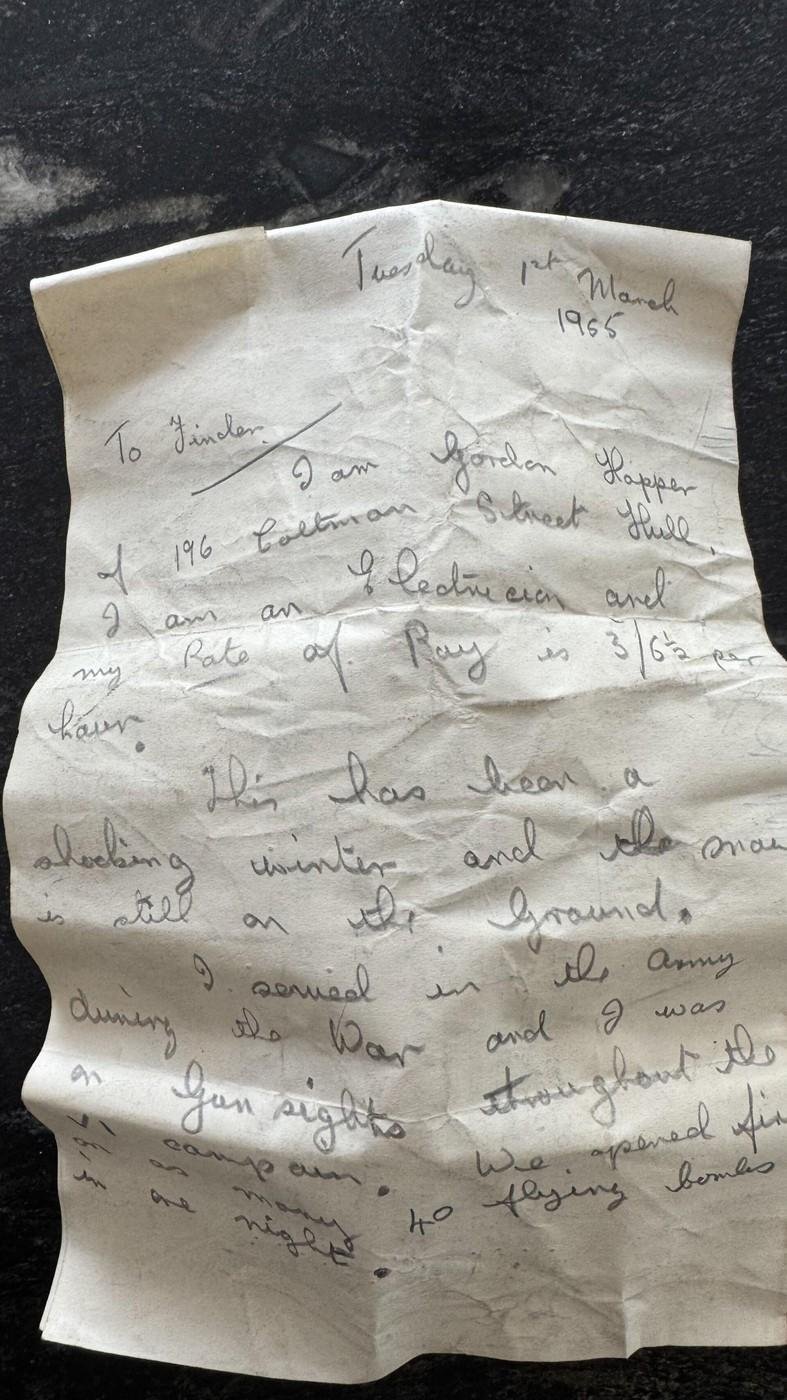 Tuesday 1st March
1955
To Finder.
I am Gordon Hopper
of 196 Coltman Street Hull.
I am an Electrician and
my Rate of Pay is 3/6½ per
hour.
This has been a
shocking winter and the snow
is still on the Ground.
I served in the army
during the War and I was
on Gun sights throughout the
V1 campain. We opened fir
on as many 40 flying bombs
in one night.